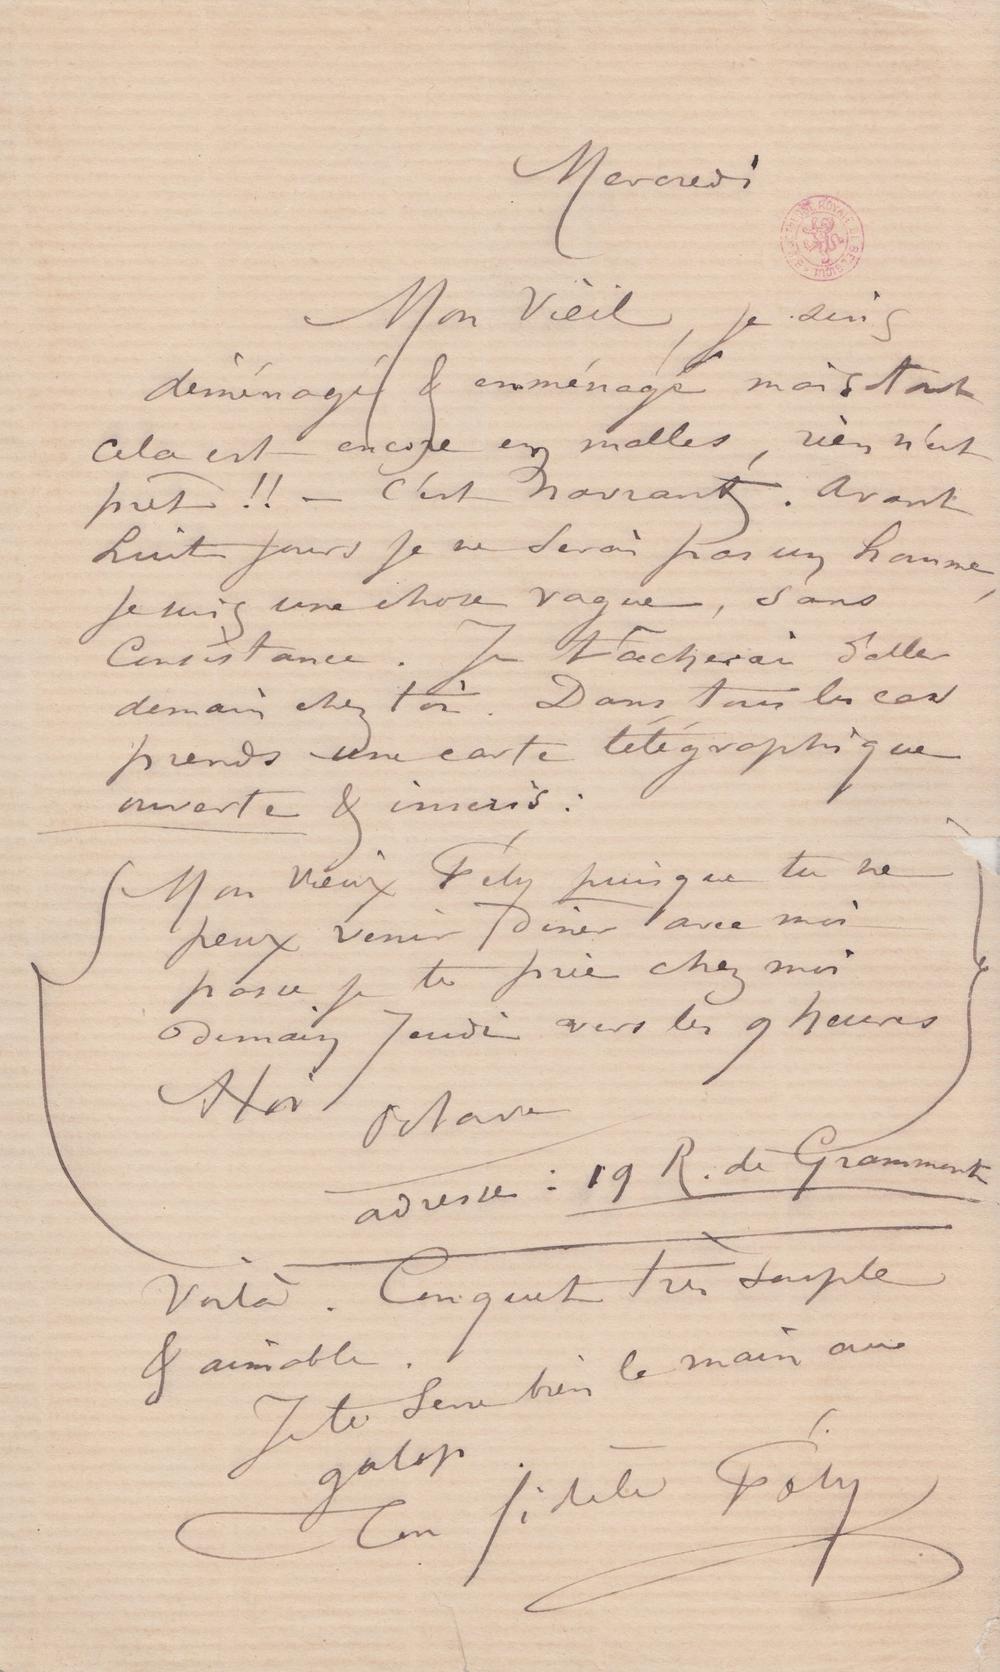 Mercredi
Mon Vieil, je suis
déménagé & emménagé mais tout
cela est encore en malles, rien n'est
prêt !! — C'est navrant. Avant
huit jours je ne serai pas un homme,
je suis une chose vague, sans
Consistance. Je tâcherai d'aller
demain chez toi. Dans tous les cas
prends une carte télégraphique
ouverte & inscris :
Mon vieux Fély puisque tu ne
peux venir diner avec moi
passe je te prie chez moi
Demain Jeudi vers les 9 heures
A toi Octave
adresse : 19 R. de Grammont
Voilà. Conquet très souple
& aimable.
Je te serre bien la main au
galop.
Ton fidèle Fély
BIBLIOTHEQUE ROYALE DE BELGIQUE